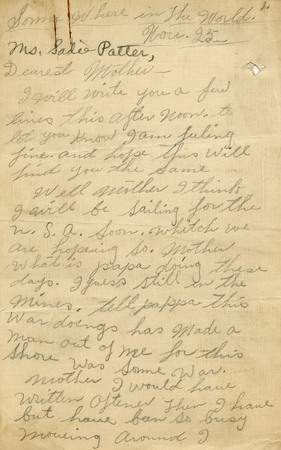 Some Where in The World.
Nov. 25
Ms. Sadie Patter,
Dearest Mother—
I will write you a few
lines this after noon. to
let you know I am feling
fine and hope this will
find you the same
Well Mother I think
I will be sailing for the
U. S. A. soon. whitch we
are hopeing so. Mother
What is papa doing these
days. I guess still in the
Mines. tell pappa this
War doengs has Made a
Man out of Me for this
Shore Was Some War.
Mother I Would have
Written oftener Then I have
but have ben so busy
Moveing Around I